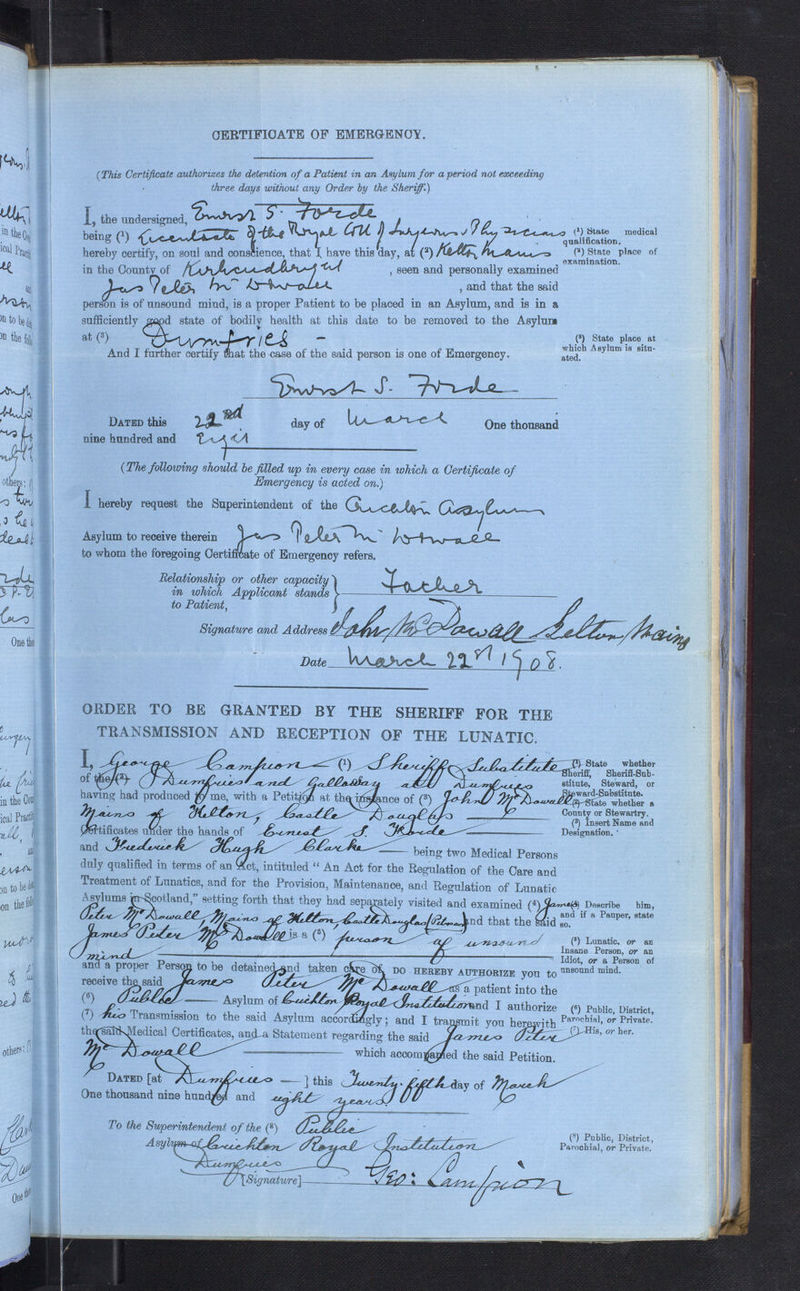 CERTIFICATE OF EMERGENCY.
(This Certificate authorizes the detention of a Patient in an Asylum for a period not exceeding
three days without any Order by the Sheriff.)
I, the undersigned, Ernest S. Forde
being (¹) Licentiate of the Royal Coll of Surgeons & Physicians
hereby certify, on soul and conscience, that I have this day, at (²) Kelton Mains
in the County of Kirkcudbright, seen and personally examined
Jas Peter Mc Dowall, and that the said
person is of unsound mind, is a proper Patient to be placed in an Asylum, and is in a
sufficiently good state of bodily health at this date to be removed to the Asylum
at (³) Dumfries –
And I further certify that the case of the said person is one of Emergency.
(¹) State medical
qualification.
(²) State place of
examination.
(³) State place at
which Asylum is situ-
ated.
Ernest S. Forde
DATED this 22nd day of March One thousand
nine hundred and Eight
(The following should be filled up in every case in which a Certificate of
Emergency is acted on.)
I hereby request the Superintendent of the Crichton Asylum
Asylum to receive therein Jas Peter Mc Dowall
to whom the foregoing Certificate of Emergency refers.
Relationship or other capacity
in which Applicant stands
to Patient,
} Father
Signature and Address John McDowall Kelton Mains
Date March 22nd 1908.
ORDER TO BE GRANTED BY THE SHERIFF FOR THE
TRANSMISSION AND RECEPTION OF THE LUNATIC.
I, George Campion (¹) Sheriff Substitute
of the (²) Dumfries and Galloway at Dumfries
having had produced to me, with a Petition at the instance of (³) John McDowall
Mains of Kelton, Castle Douglas
Certificates under the hands of Ernest S. Forde
and Frederick Hugh Clarke being two Medical Persons
duly qualified in terms of an Act, intituled "An Act for the Regulation of the Care and
Treatment of Lunatics, and for the Provision, Maintenance, and Regulation of Lunatic
Asylums in Scotland," setting forth that they had separately visited and examined (⁴) James
Peter McDowall, Mains of Kelton, Castle Douglas and that the said
James Peter McDowall is a (⁵) person of unsound
mind
and a proper Person to be detained and taken care of, DO HEREBY AUTHORIZE you to
receive the said James Peter McDowall as a patient into the
(⁶) Public Asylum of Crichton Royal Institution and I authorize
(⁷) his Transmission to the said Asylum accordingly; and I transmit you herewith
the said Medical Certificates, and a Statement regarding the said James Peter
McDowall which accompanied the said Petition.
(¹) State whether
Sheriff, Sheriff-Sub-
stitute, Steward, or
Steward-Substitute.
(²) State whether a
County or Stewartry.
(³) Insert Name and
Designation.
(⁴) Describe him,
and if a Pauper, state
so.
(⁵) Lunatic, or an
Insane Person, or an
Idiot, or a Person of
unsound mind.
(⁶) Public, District,
Parochial, or Private.
(⁷) His, or her.
DATED [at Dumfries ] this Twenty-fifth day of March
One thousand nine hundred and eight years.
To the Superintendent of the (⁸) Public
Asylum of Crichton Royal Institution
Dumfries
(⁸) Public, District,
Parochial, or Private.
[Signature] Geo: Campion